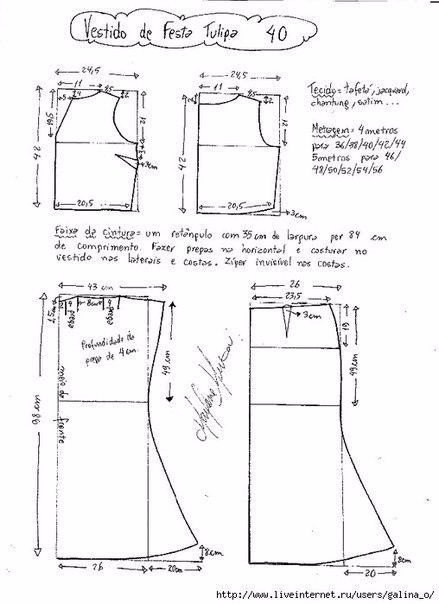 Vestido de Festa Tulipa 40
24,5
11
2,5
2
19,5
24
21
3
42
3cm
20,5
24,5
11
2,5
2
21
42
20,5
3cm
Tecido= tafetá, jacquard,
chantung, cetim...
Metragem= 4 metros
para 36/38/40/42/44
5 metros para 46/
48/50/52/54/56
Faixa da cintura= um retângulo com 35 cm de largura por 84 cm
de comprimento. Fazer pregas na horizontal e costurar no
vestido nas laterais e costas. Zíper invisível nas costas.
43 cm
1,5cm
4
8cm
4
prega
prega
Profundidade da
prega de 4 cm.
49 cm
98 cm
meio da
frente
8cm
26
20cm
26
23,5
3cm
19
49 cm
8cm
20
http://www.liveinternet.ru/users/galina_o/